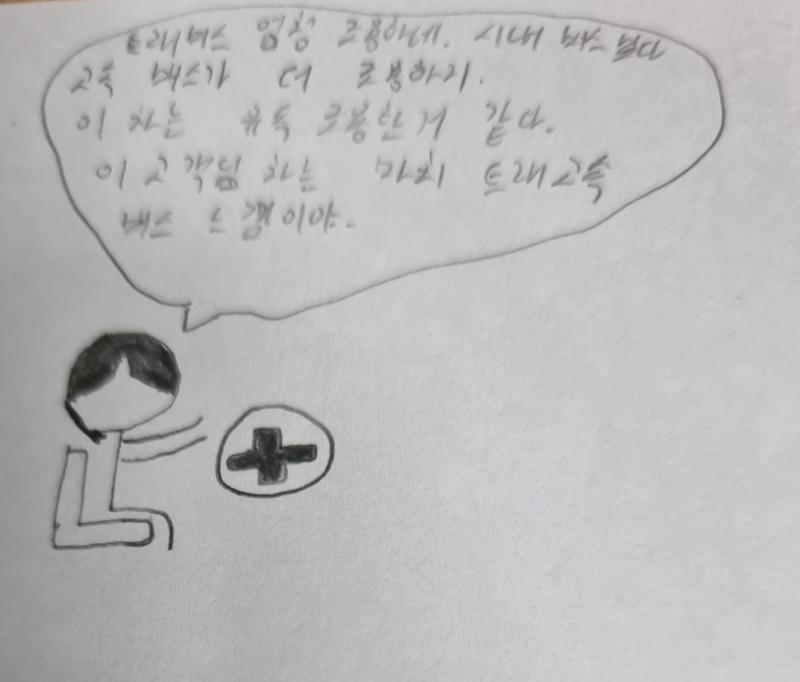 트래버스 엄청 조용하네. 시내 버스 보다
고속 버스가 더 조용하지.
이 차는 유독 조용한거 같다.
이 고객님 차는 마치 트래고속
버스 느낌이야.